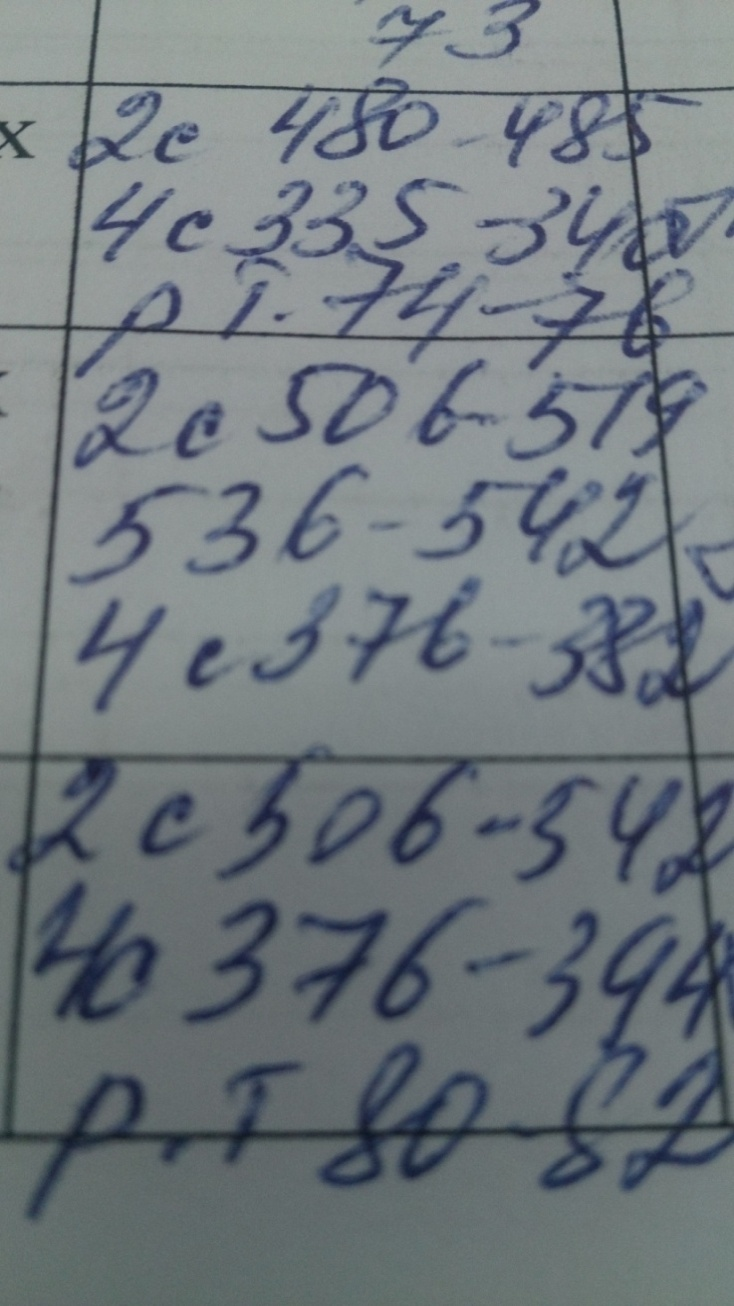 73
х 2с 480-485
4с 335-340
р т. 74-76
2с 506-519
536-542
4с 376-382
2с 506-542
4с 376-394
р.т 80-82